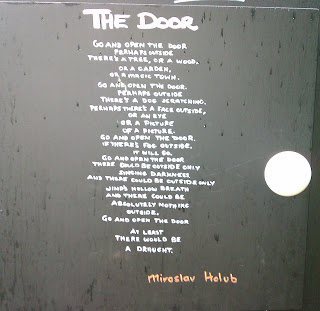 THE DOOR
GO AND OPEN THE DOOR
PERHAPS OUTSIDE
THERE'S A TREE, OR A WOOD.
OR A GARDEN,
OR A MAGIC TOWN.
GO AND OPEN THE DOOR.
PERHAPS OUTSIDE
THERE'S A DOG SCRATCHING.
PERHAPS THERE'S A FACE OUTSIDE,
OR AN EYE
OR A PICTURE
OF A PICTURE.
GO AND OPEN THE DOOR.
IF THERE'S FOG OUTSIDE,
IT WILL GO.
GO AND OPEN THE DOOR
THERE COULD BE OUTSIDE ONLY
SINGING DARKNESS,
AND THERE COULD BE OUTSIDE ONLY
WIND'S HOLLOW BREATH
AND THERE COULD BE
ABSOLUTELY NOTHING
OUTSIDE.
GO AND OPEN THE DOOR
AT LEAST
THERE WOULD BE
A DRAUGHT.
Miroslav Holub